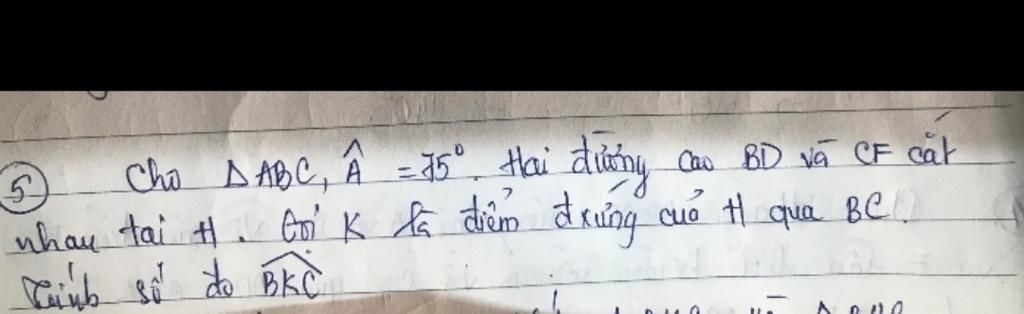 ⑤ Cho ΔABC, Â = 75°. Hai đường cao BD và CF cắt
nhau tại H. Gọi K là điểm đ xứng của H qua BC.
Tính số đo BKC